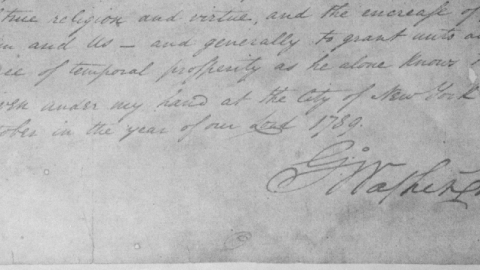 true religion and virtue, and the encrease of
m and Us — and generally to grant unto
ree of temporal prosperity as he alone knows
ven under my hand at the city of New York
ober in the year of our Lord 1789.
G:Washingt